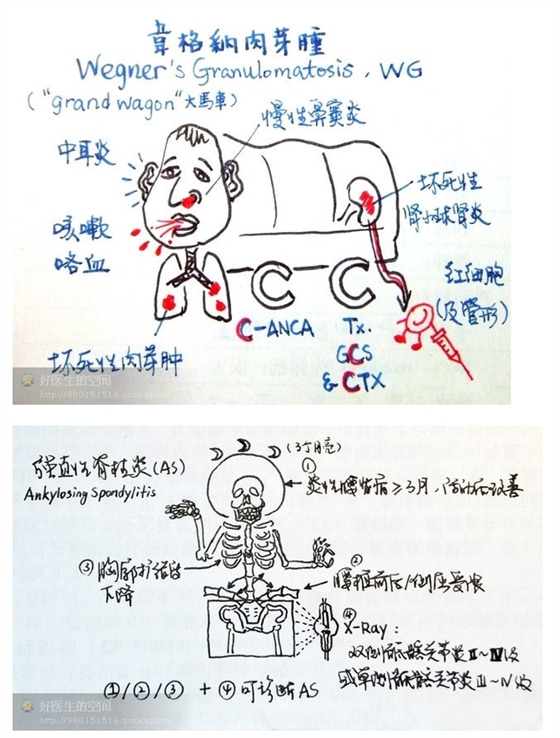 韋格納肉芽腫
Wegner's Granulomatosis, WG
("grand wagon"大馬車)
慢性鼻竇炎
中耳炎
坏死性
肾小球肾炎
咳嗽
咯血
红细胞
(及管形)
C-ANCA
Tx.
GCS
& CTX
坏死性肉芽肿
好医生的空间
http://980151516.qzone.qq.com
强直性脊柱炎(AS)
Ankylosing Spondylitis
(3个月亮)
① 炎性腰背痛≥3月,活动后改善
② 腰椎前后/侧屈受限
③ 胸廓扩张度
下降
④ X-Ray:
双侧骶髂关节炎Ⅱ~Ⅳ级
或单侧骶髂关节炎Ⅲ~Ⅳ级
①/②/③ + ④可诊断AS
好医生的空间
http://980151516.qzone.qq.com